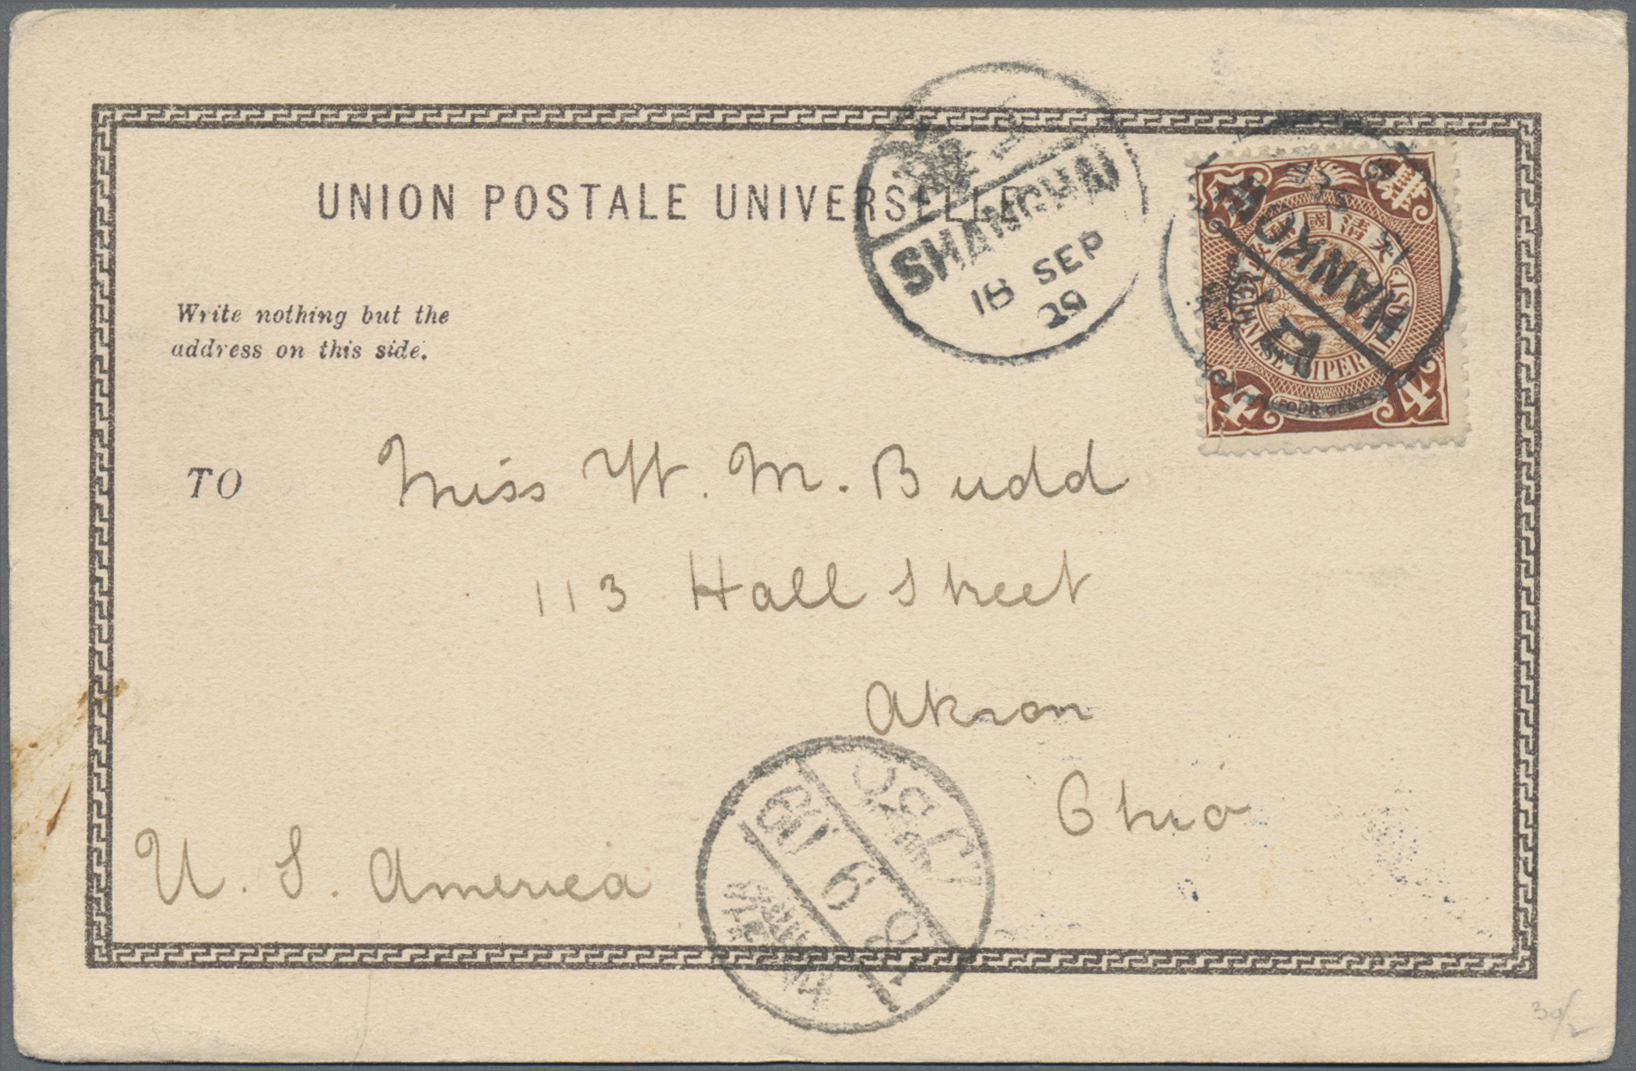 UNION POSTALE UNIVERSELLE
上
SHANGHAI
18 SEP
29
HANKOW
大清國
CHINESE IMPERIAL POST
FOUR CENTS
4 4
Write nothing but the
address on this side.
TO Miss W. M. Budd
113 Hall Street
Akron
Ohio
U. S. America
30/2